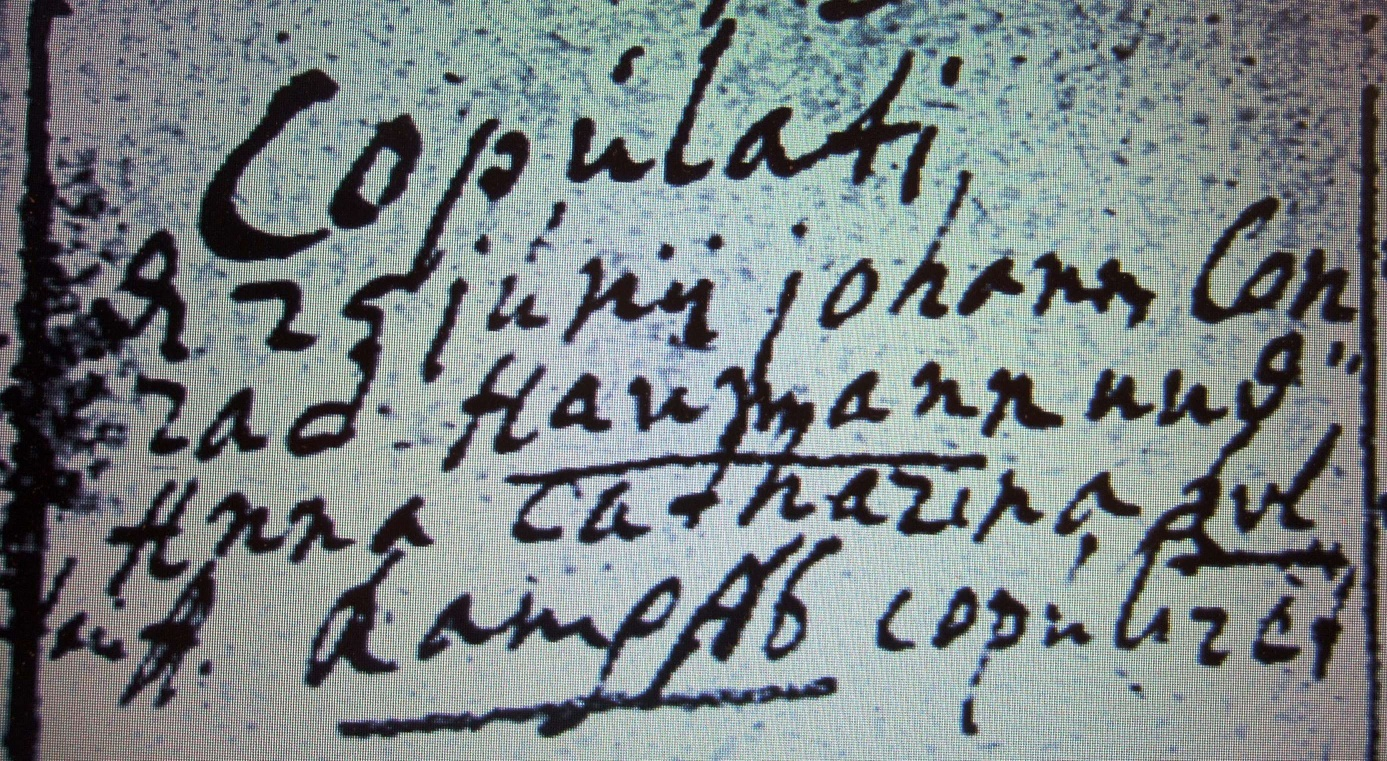 Copulati,
d 25 junij johann Con
rad Haußmann und
Anna Catharina,
Kampff copulirt